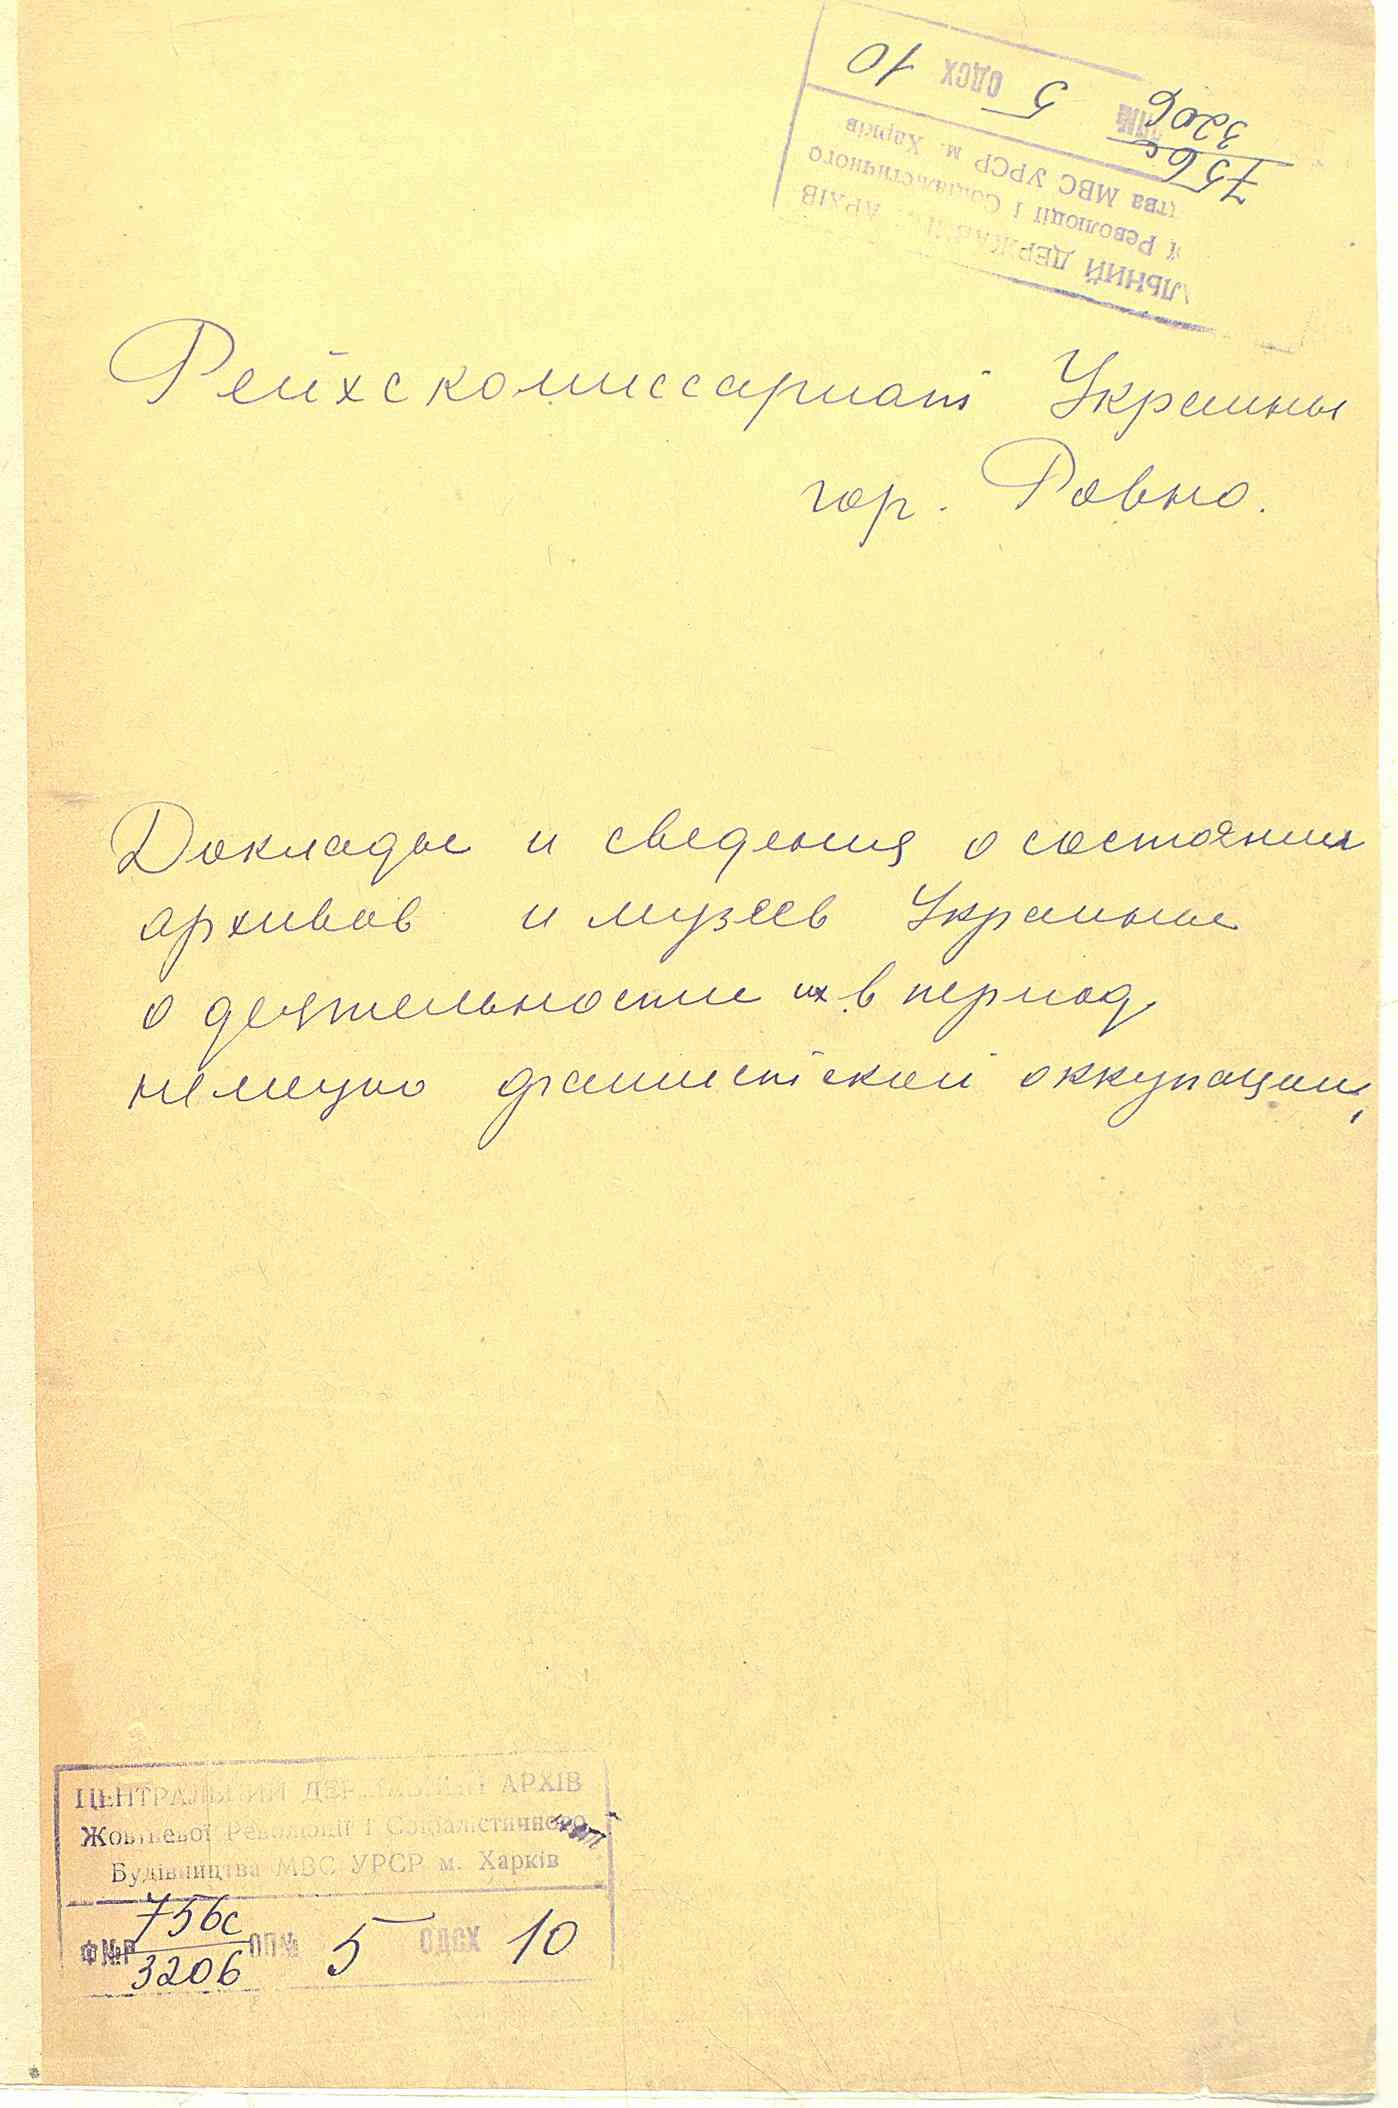 ОДСХ 10
5
756с
3206
ЛЬНИЙ ДЕРЖАВНИЙ АРХІВ
ї Революції і Соціалістичного
цтва МВС УРСР м. Харків
Рейхскомиссариат Украины
гор. Ровно.
Доклады и сведения о состоянии
архивов и музеев Украины
о деятельности их в период
немецко фашистской оккупации,
ЦЕНТРАЛЬНИЙ ДЕРЖАВНИЙ АРХІВ
Жовтневої Революції і Соціалістичного
Будівництва МВС УРСР м. Харків
Ф№Р 756с ОП№ 5 ОДСХ 10
3206